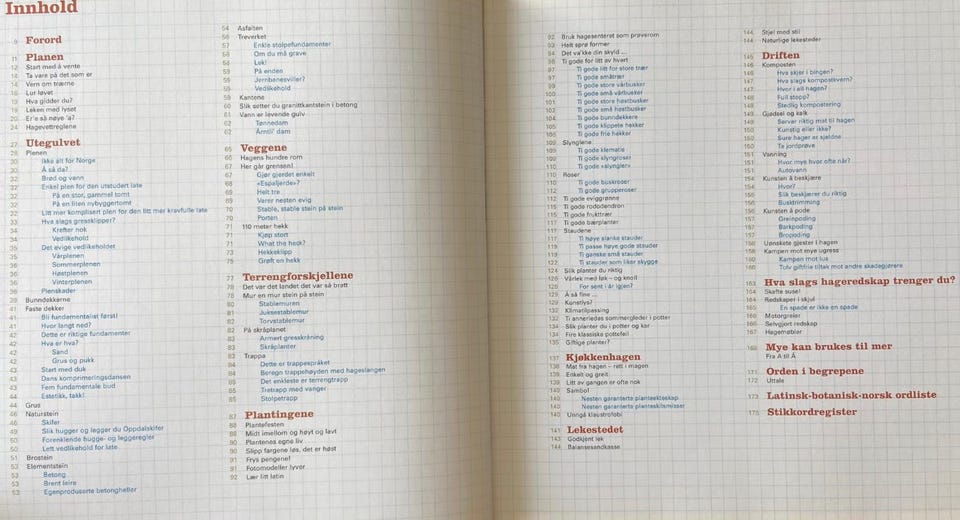 Innhold
9 Forord
11 Planen
12 Start med å vente
14 Ta vare på det som er
14 Vern om trærne
16 Lur løvet
19 Hva gidder du?
19 Leken med lyset
20 Er'e så nøye 'a?
24 Hagevettreglene
27 Utegulvet
28 Plenen
30 Ikke alt for Norge
30 Å så da?
32 Brød og vann
32 Enkel plen for den utstudert late
32 På en stor, gammel tomt
32 På en liten nybyggertomt
32 Litt mer komplisert plen for den litt mer kravfulle late
33 Hva slags gressklipper?
34 Krefter nok
34 Vedlikehold
35 Det evige vedlikeholdet
35 Vårplenen
36 Sommerplenen
36 Høstplenen
36 Vinterplenen
38 Plenskader
39 Bunndekkerne
41 Faste dekker
41 Bli fundamentalist først!
41 Hvor langt ned?
42 Dette er riktige fundamenter
42 Hva er hva?
42 Sand
42 Grus og pukk
43 Start med duk
43 Dans komprimeringsdansen
43 Fem fundamentale bud
43 Estetikk, takk!
44 Grus
46 Naturstein
46 Skifer
49 Slik hugger og legger du Oppdalskifer
50 Forenklende hugge- og leggeregler
50 Lett vedlikehold for late
51 Brostein
53 Elementstein
53 Betong
53 Brent leire
53 Egenproduserte betongheller
54 Asfalten
56 Treverket
57 Enkle stolpefundamenter
58 Om du må grave
58 Lek!
59 På enden
58 Jernbanesviller?
59 Vedlikehold
59 Kantene
60 Slik setter du granittkantstein i betong
61 Vann er levende gulv
62 Tønnedam
62 Ærntli' dam
65 Veggene
66 Hagens hundre rom
67 Her går grensen!
67 Gjør gjerdet enkelt
68 «Espaljerde»?
69 Helt tre
69 Verer nesten evig
70 Stable, stable stein på stein
70 Porten
71 110 meter hekk
71 Kjøp stort
71 What the heck?
73 Hekkeklipp
75 Grøft en hekk
77 Terrengforskjellene
78 Det var det landet det var så bratt
78 Mur en mur stein på stein
80 Stablemuren
81 Juksestablemur
82 Torvstablemur
82 På skråplanet
83 Armert gresskråning
83 Skråplanter
83 Trappa
84 Dette er trappespråket
84 Beregn trappehøyden med hageslangen
85 Det enkleste er terrengtrapp
85 Tretrapp med vanger
85 Stolpetrapp
87 Plantingene
88 Plantefesten
88 Midt imellom og høyt og lavt
90 Plantenes egne liv
90 Slipp fargene løs, det er høst
91 Frys pengene!
91 Fotomodeller lyver
92 Lær litt latin
92 Bruk hagesenteret som prøverom
93 Helt sprø former
94 Det va'kke din skyld ...
96 Ti gode for litt av hvert
97 Ti gode litt for store trær
97 Ti gode småtrær
99 Ti gode store vårbusker
100 Ti gode små vårbusker
101 Ti gode store høstbusker
103 Ti gode små høstbusker
104 Ti gode bunndekkere
105 Ti gode klippete hekker
106 Ti gode frie hekker
109 Slynglene
109 Ti gode klematis
109 Ti gode slyngroser
110 Ti gode «slyngler»
110 Roser
110 Ti gode buskroser
112 Ti gode grupperoser
112 Ti gode eviggrønne
115 Ti gode rododendron
115 Ti gode frukttrær
116 Ti gode bærplanter
117 Staudene
117 Ti høye slanke stauder
119 Ti passe høye gode stauder
121 Ti ganske små stauder
122 Ti stauder som liker skygge
124 Slik planter du riktig
126 Vårlek med løk – og knoll
128 For sent i år igjen?
129 Å så fine ...
129 Kunstlys?
132 Klimatilpassing
132 Ti annerledes sommergleder i potter
134 Slik planter du i potter og kar
134 Fire klassiske pottefeil
135 Giftige planter?
137 Kjøkkenhagen
138 Mat fra hagen – rett i magen
139 Enkelt og greit
139 Litt av gangen er ofte nok
140 Sambo!
140 Nesten garanterte planteekteskap
143 Nesten garanterte planteskilsmisser
140 Unngå klaustrofobi
141 Lekestedet
143 Godkjent lek
144 Balansesandkasse
144 Stjel med stil
144 Naturlige lekesteder
145 Driften
146 Komposten
146 Hva skjer i bingen?
147 Hva slags kompostkvern?
147 Hvor i all hagen?
148 Full stopp?
148 Stedlig kompostering
149 Gjødsel og kalk
149 Server riktig mat til hagen
150 Kunstig eller ikke?
150 Sure hager er sjeldne
150 Ta jordprøve
151 Vanning
151 Hvor mye hvor ofte når?
151 Autovann
154 Kunsten å beskjære
154 Hvor?
155 Slik beskjærer du riktig
156 Busktrimming
156 Kunsten å pode
157 Greinpoding
157 Barkpoding
157 Bropoding
158 Uønskete gjester i hagen
158 Kampen mot mye ugress
160 Kampen mot lus
160 Tolv giftfrie tiltak mot andre skadegjørere
163 Hva slags hageredskap trenger du?
164 Skafte suse!
164 Redskaper i skjul
165 En spade er ikke en spade
166 Motorgreier
166 Selvgjort redskap
167 Hagemøbler
169 Mye kan brukes til mer
Fra A til Å
171 Orden i begrepene
172 Uttale
173 Latinsk-botanisk-norsk ordliste
175 Stikkordregister